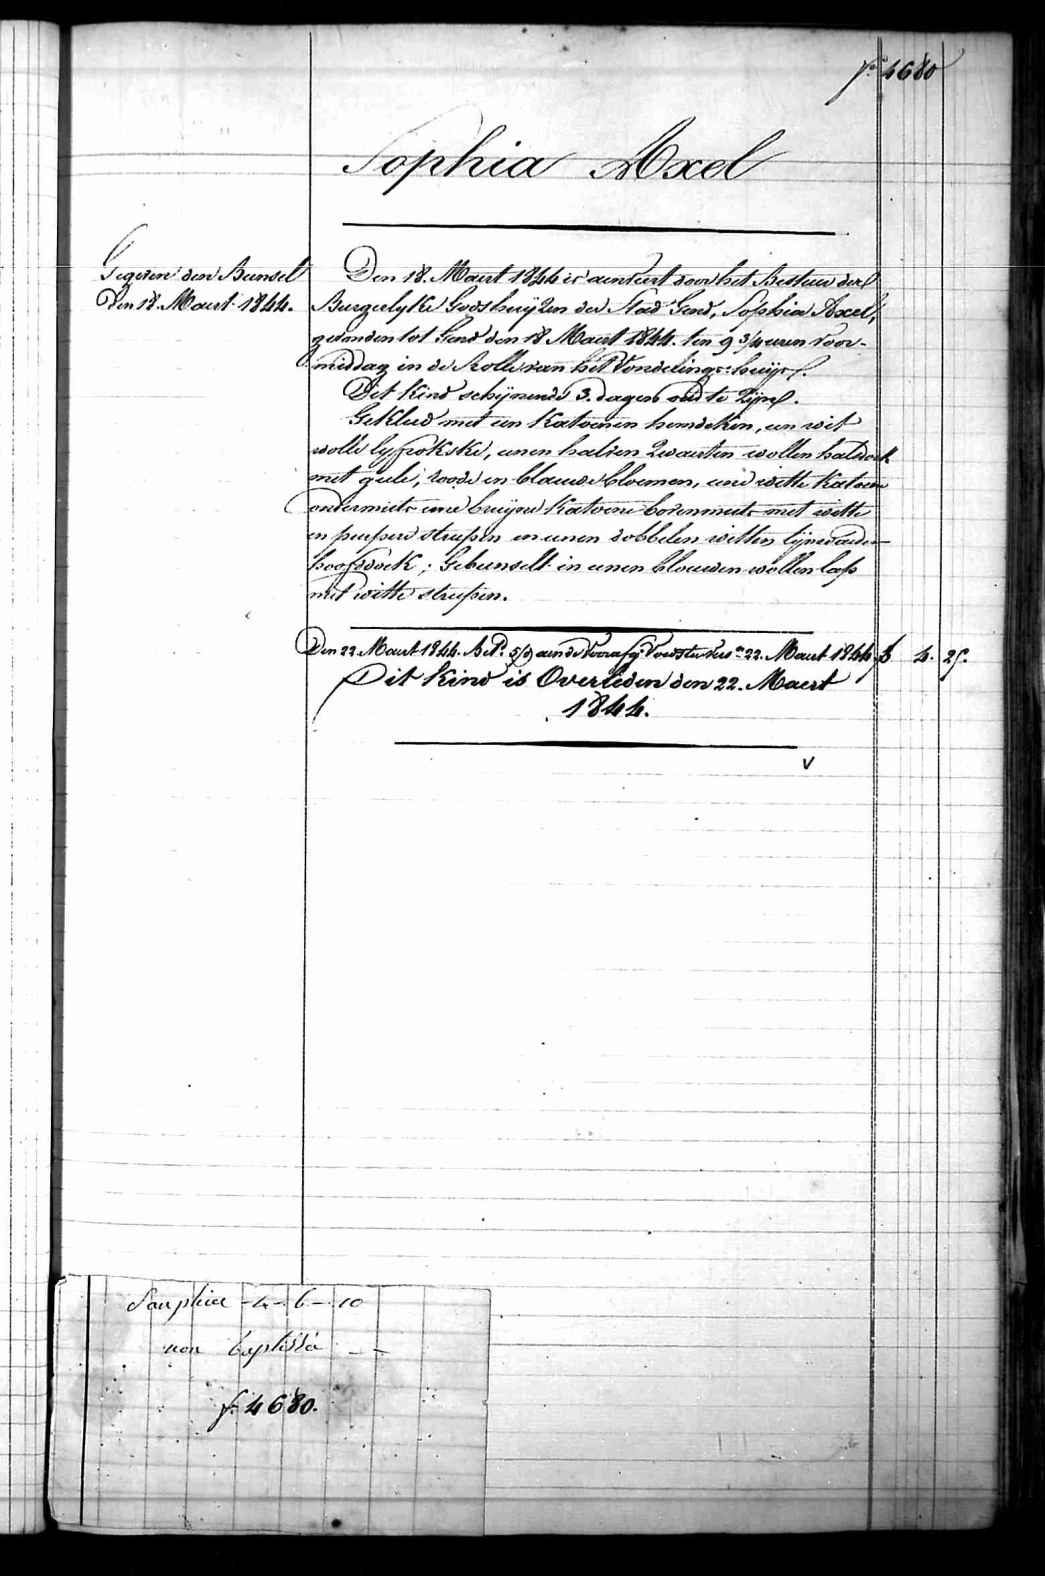 fo 4680
Sophia Axel
Gegeven den Bunsel
Den 18. Maert 1844.
Den 18. Maert 1844 is aenveert door het Bestuer der
Burgerlyke Godshuyzen der Stad Gend, Sophia Axel,
gevonden tot Gend den 18 Maert 1844. ten 9 3/4 uren voor-
middag in de Rolle van het Vondelings-huys.
Dit Kind schynende 3. dagen oud te zyn.
Gekleed met een Katoenen hemdeken, een wit
wolle lyfrokske, eenen halven zwarten wollen halsdoek
met gele, roode en blauwe bloemen, eene witte Katoene
ondermuts eene bruyne Katoene bovenmuts met witte
en peerpere strepen en eenen dobbelen witten lynwaden
hoofddoek; Gebunselt in eenen blauwen wollen lap
met witte strepen.
Den 22. Maert 1844. Bet. 5/9 aen de Voorafg. Voedster 22. Maert 1844 f 4. 25.
Dit Kind is Overleden den 22. Maert
1844.
V
Sauphie - 4 - 6 - 10
non baptissé
fo 4680.